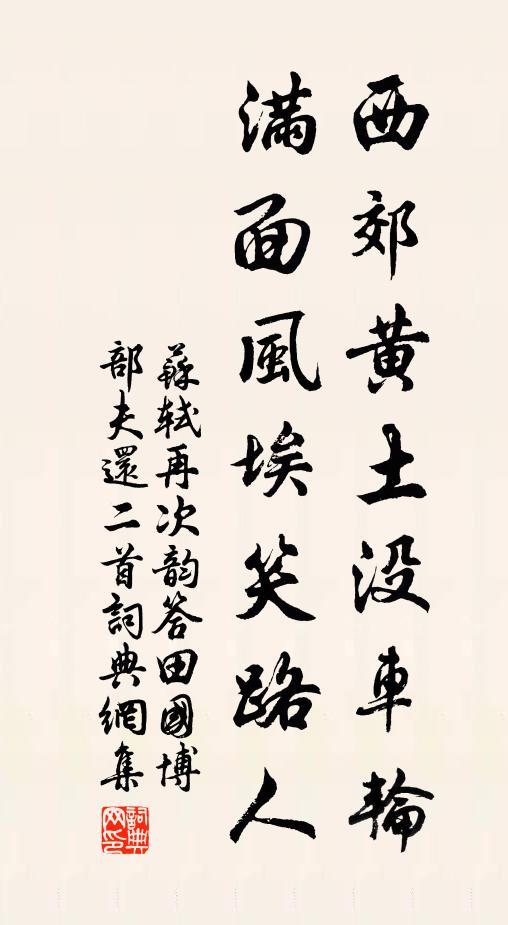 西郊黄土没車輪
滿面風埃笑路人
蘇軾再次韵答田國博
部夫還二首詞典網集
詞典網印